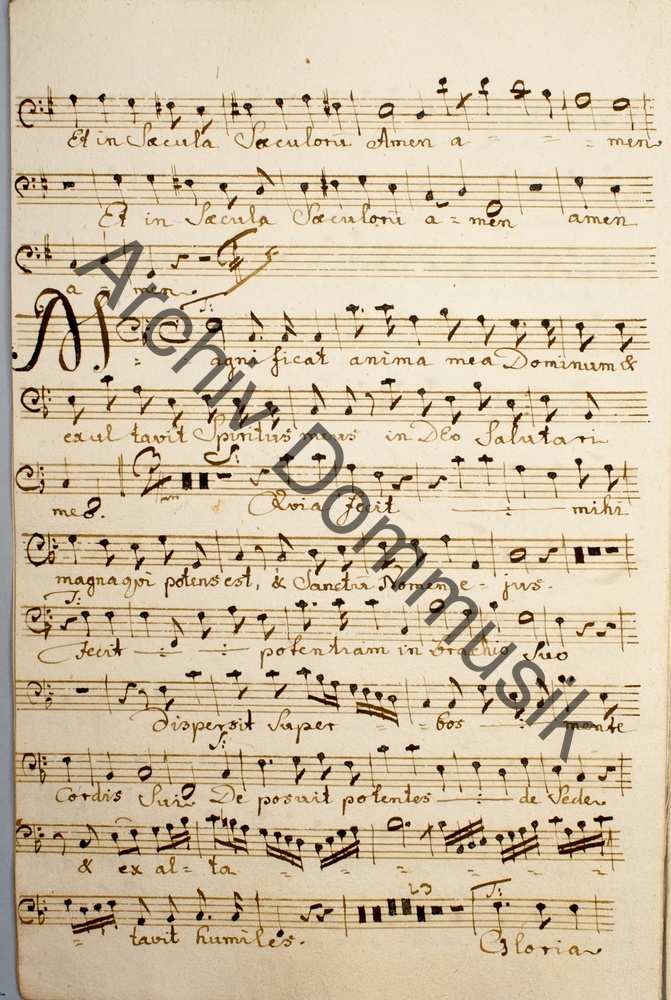 Et in Sæcula Sæculorū Amen a - - - men
Et in Sæcula Sæculorū a - men amen
a - men
T:
Magnificat anima mea Dominum &
exultavit Spiritus meus in Deo Salutari
meo. Quia fecit mihi
magna qui potens est, & Sanctū Nomen e - jus.
T:
Fecit potentiam in brachio Suo
Dispersit Super - bos mente
Cordis Sui De posuit potentes de Sede
& ex al - ta - - - -
23 T:
tavit humiles. Gloria
Archiv Dommusik